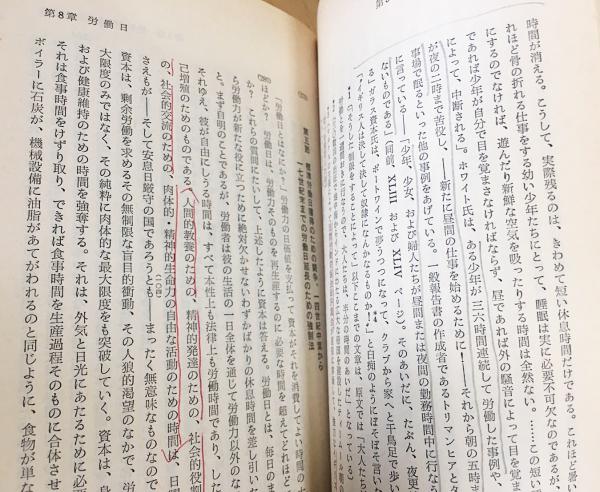 時間が消える。こうして、実際残るのは、きわめて短い休息時間だけである。これほど暑い
れほど骨の折れる仕事をする幼い少年たちにとって、睡眠は実に必要不可欠なのであるが、
にするのでなければ、遊んだり新鮮な空気を吸ったりする時間は全然ない。……この短い
であれば少年が自分で目を覚まさなければならず、昼であれば外の騒音によって目を覚ま
によって、中断される」。ホワイト氏は、ある少年が三六時間連続して労働した事例や、
が夜の二時まで苦役し、――新たに昼間の仕事を始めるために!――それから朝の五時ま
事場で眠るといった他の事例をあげている。一般報告書の作成者であるトリマンヒアとタ
に言っている――「少年、少女、および婦人たちが昼間または夜間の勤務時間中に行なう
ないものである」(同前、XLIII および XLIV ページ)。そのあいだに、たぶん、夜更
るガラス資本氏は、ポートワインで夢うつつになって、クラブから家へと千鳥足で歩い
「イギリス人は決して決して奴隷になんかなるものか!」と白痴のようにぼそぼそ言い
第8章 労働日
第五節 標準労働日獲得のための闘争。一四世紀中葉から
一七世紀末までの労働日延長のための強制法
「労働日とはなにか?」労働力の日価値を支払って資本がそれを消費してよい時間の大
はどれほどか? 労働日は、労働力そのものを再生産するのに必要な時間を超えてどれほど
か? これらの質問にたいして、上述したように資本は答える。労働日とは、毎日のま
ら労働力が新たな役に立つために絶対欠かせないわずかばかりの休息時間を差し引い
まず自明のことであるが、労働者は彼の生活の一日全体を通じて労働力以外のな
それゆえ、彼が自由にしうる時間は、すべて本性上も法律上も労働時間であり、した
己増殖のためのものである。人間的教養のための、精神的発達のための、社会的役割
の、社会的交流のための、肉体的・精神的生命力の自由な活動のための時間は、日曜
さえもが――そして安息日厳守の国であろうとも――まったく無意味なものなので
資本は、剰余労働を求めるその無制限な盲目的衝動、その人狼的渇望のなかで、労
大限度のみではなく、その純粋に肉体的な最大限度をも突破していく。資本は、身
および健康維持のための時間を強奪する。それは、外気と日光にあたるために必要
それは食事時間をけずり取り、できれば食事時間を生産過程そのものに合体させ
ボイラーに石炭が、機械設備に油脂があてがわれるのと同じように、食物が単な